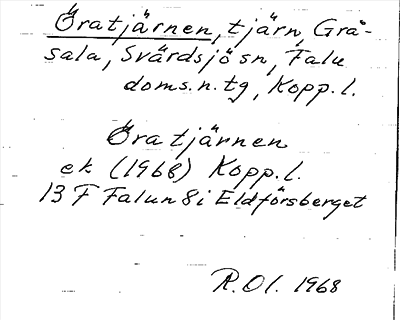 Öratjärnen, tjärn, Grå-
sala, Svärdsjö sn, Falu
doms.n.tg, Kopp.l.
Öratjärnen
ek (1968) Kopp.l.
13 F Falun 8i Eldförsberget
R.Ol. 1968